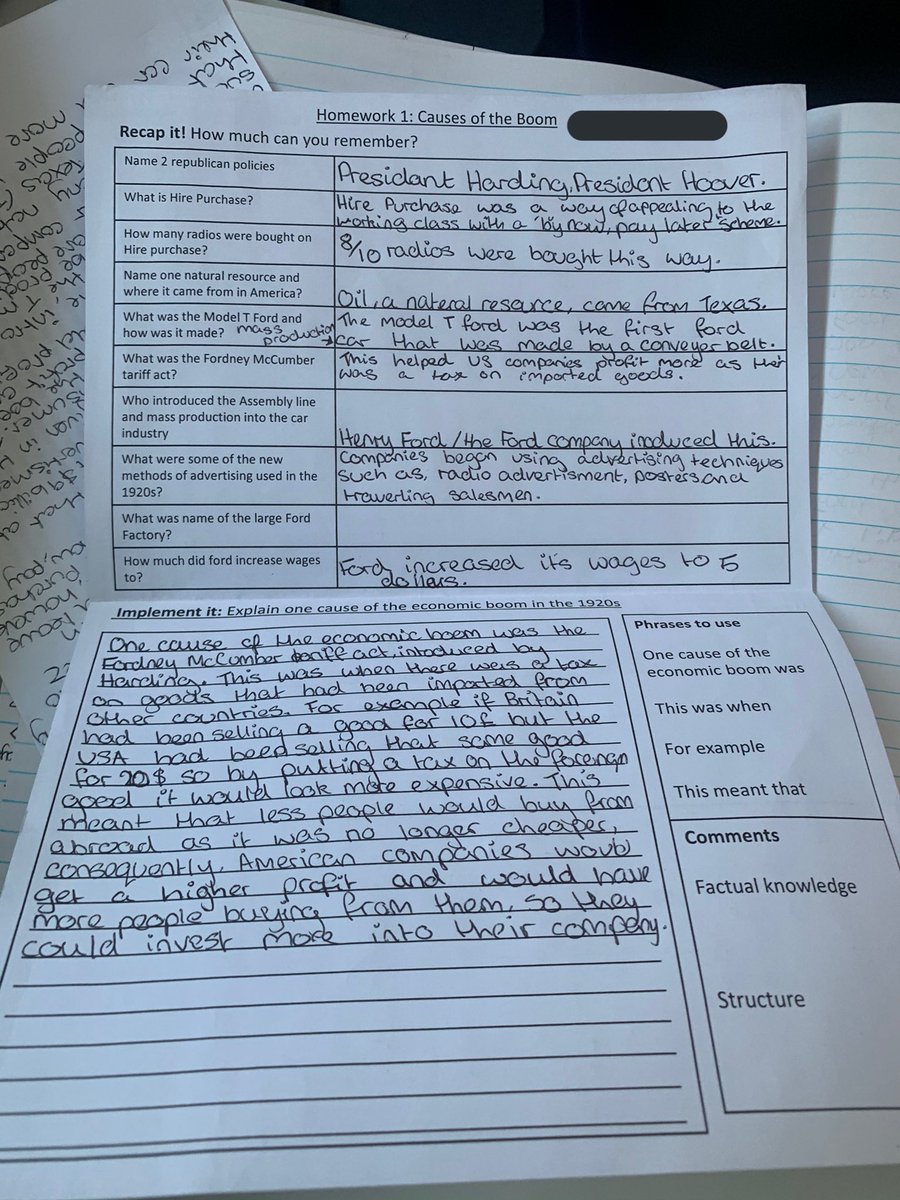 Homework 1: Causes of the Boom
Recap it! How much can you remember?
Name 2 republican policies
Presidant Harding, President Hoover.
What is Hire Purchase?
Hire Purchase was a way of appealing to the
working class with a 'by now, pay later' scheme.
How many radios were bought on
Hire purchase?
8/10 radios were bought this way.
Name one natural resource and
where it came from in America?
Oil, a nateral resource, came from Texas.
What was the Model T Ford and
how was it made?
mass
production
The model T ford was the first ford
car that was made by a conveyer belt.
What was the Fordney McCumber
tariff act?
This helped US companies profit more as ther
was a tax on imported goods.
Who introduced the Assembly line
and mass production into the car
industry
Henry Ford / the Ford company inoduced this.
What were some of the new
methods of advertising used in the
1920s?
Companies began using advertising techniques
such as, radio advertisment, posters and
traverling salesmen.
What was name of the large Ford
Factory?
How much did ford increase wages
to?
Ford increased its wages to 5
dollars.
Implement it: Explain one cause of the economic boom in the 1920s
One cause of the economic boom was the
Fordney McCumber tariff act, intoduced by
Harding. This was when there was a tax
on goods that had been imported from
other countries. For example if Britain
had been selling a good for 10£ but the
USA had beed selling that same good
for 20$ so by putting a tax on the foreign
good it would look more expensive. This
meant that less people would buy from
abroad as it was no longer cheaper,
consequently, American companies would
get a higher profit and would have
more people buying from them, so they
could invest more into their company.
Phrases to use
One cause of the
economic boom was
This was when
For example
This meant that
Comments
Factual knowledge
Structure